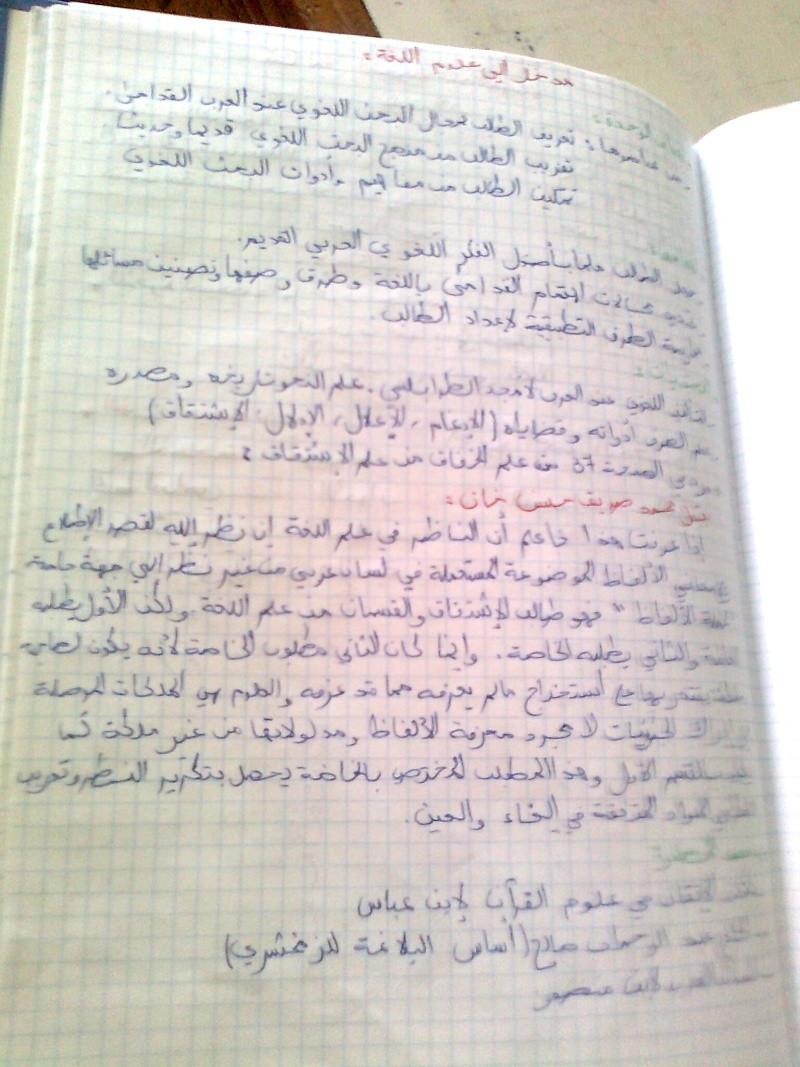 مدخل إلى علوم اللغة :
الوحدة :
من عناصرها : تعريف الطالب بمجال البحث اللغوي عند العرب القدامى .
تقريب الطالب من منهج البحث اللغوي قديما وحديثا .
تمكين الطالب من مفاهيم وأدوات البحث اللغوي
جعل الطالب ملما بأصول الفكر اللغوي العربي القديم .
مجالات اهتمام القدامى باللغة وطرق وصفها وتصنيف مسائلها
الطرق التطبيقية لإعداد الطالب .
عند العرب لأمجد الطرابلسي . علم النحو تاريخه ومصدره
علم الصرف أدواته وقضاياه ( الإدغام ، الإعلال ، الإبدال . الإشتقاق )
37 من علم الخفاق من علم الاشتقاق :
صديق حسن خان :
إذا عرفت هذا فاعلم أن الناظر في علم اللغة إن نظر إليه لقصد الإطلاع
الألفاظ الموضوعة المستعملة في لسان عربي من غير نظر إلى جهة جامعة
الألفاظ " فهو طالب الإشتقاق والقسمان من علم اللغة . ولكن الأول يطلبه
والثاني يطلبه الخاصة . وإنما كان الثاني مطلوب الخاصة لأنه يكون لصاحبه
يقتدر بها على استخراج مالم يعرفه مما قد عرفه والعلوم هي الملكات الموصلة
إدراك الجزئيات لا مجرد معرفة الألفاظ ومدلولاتها من غير ملكة كما
القسم الأول وهذا المطلب المختص بالخاصة يحصل بتكرير النظر
المواد المتفقة في الفاء والعين .
الإتقان في علوم القرآن لابن عباس
عبد الرحمان صالح ( أساس البلاغة للزمخشري )
لسان العرب لابن منصور